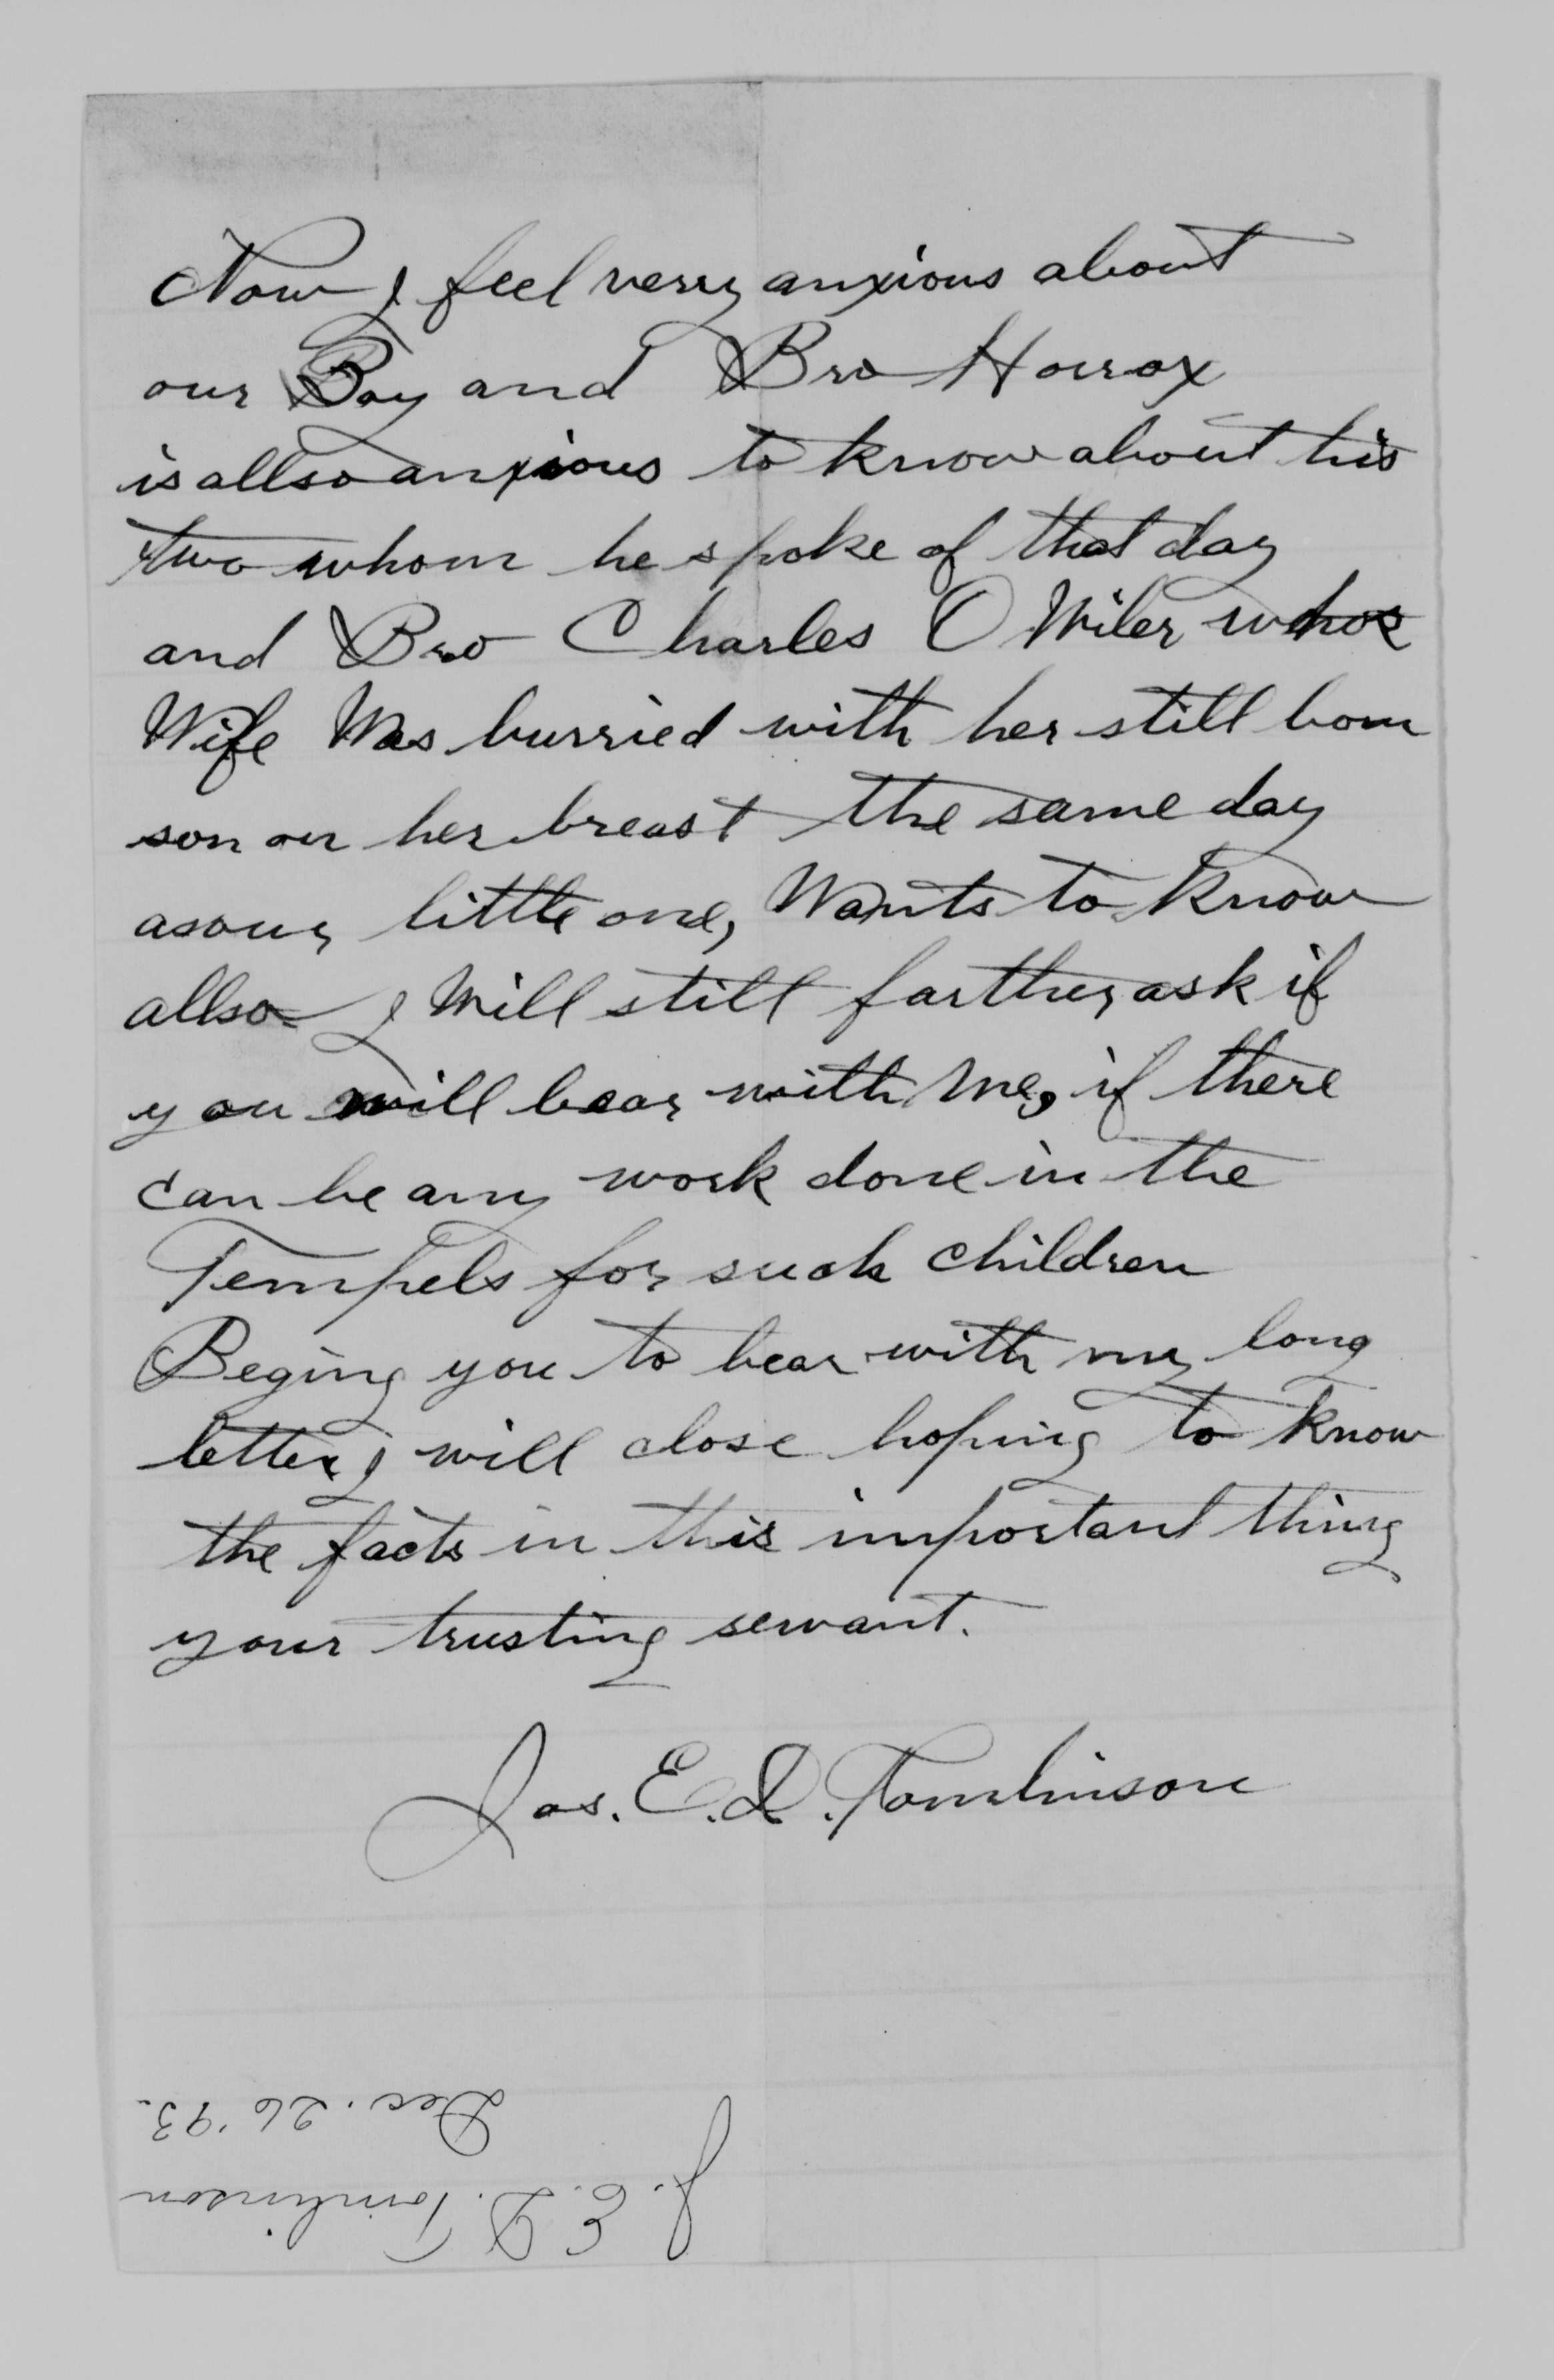 Now I feel verry anxious about
our Boy and Bro Horrox
is allso anxious to know about his
two whom he spoke of that day
and Bro Charles O Wiler whos
Wife Was burried with her still born
son on her breast the same day
as our little one, Wants to know
allso I Will still farther ask if
you will bear with Me, if there
can be any work done in the
Tempels for such children
Beging you to bear with my long
letter I will close hoping to know
the facts in this important thing
your trusting servant.
Jas. E. D. Tomlinson
J. E. D. Tomlinson
Dec. 26 '93.